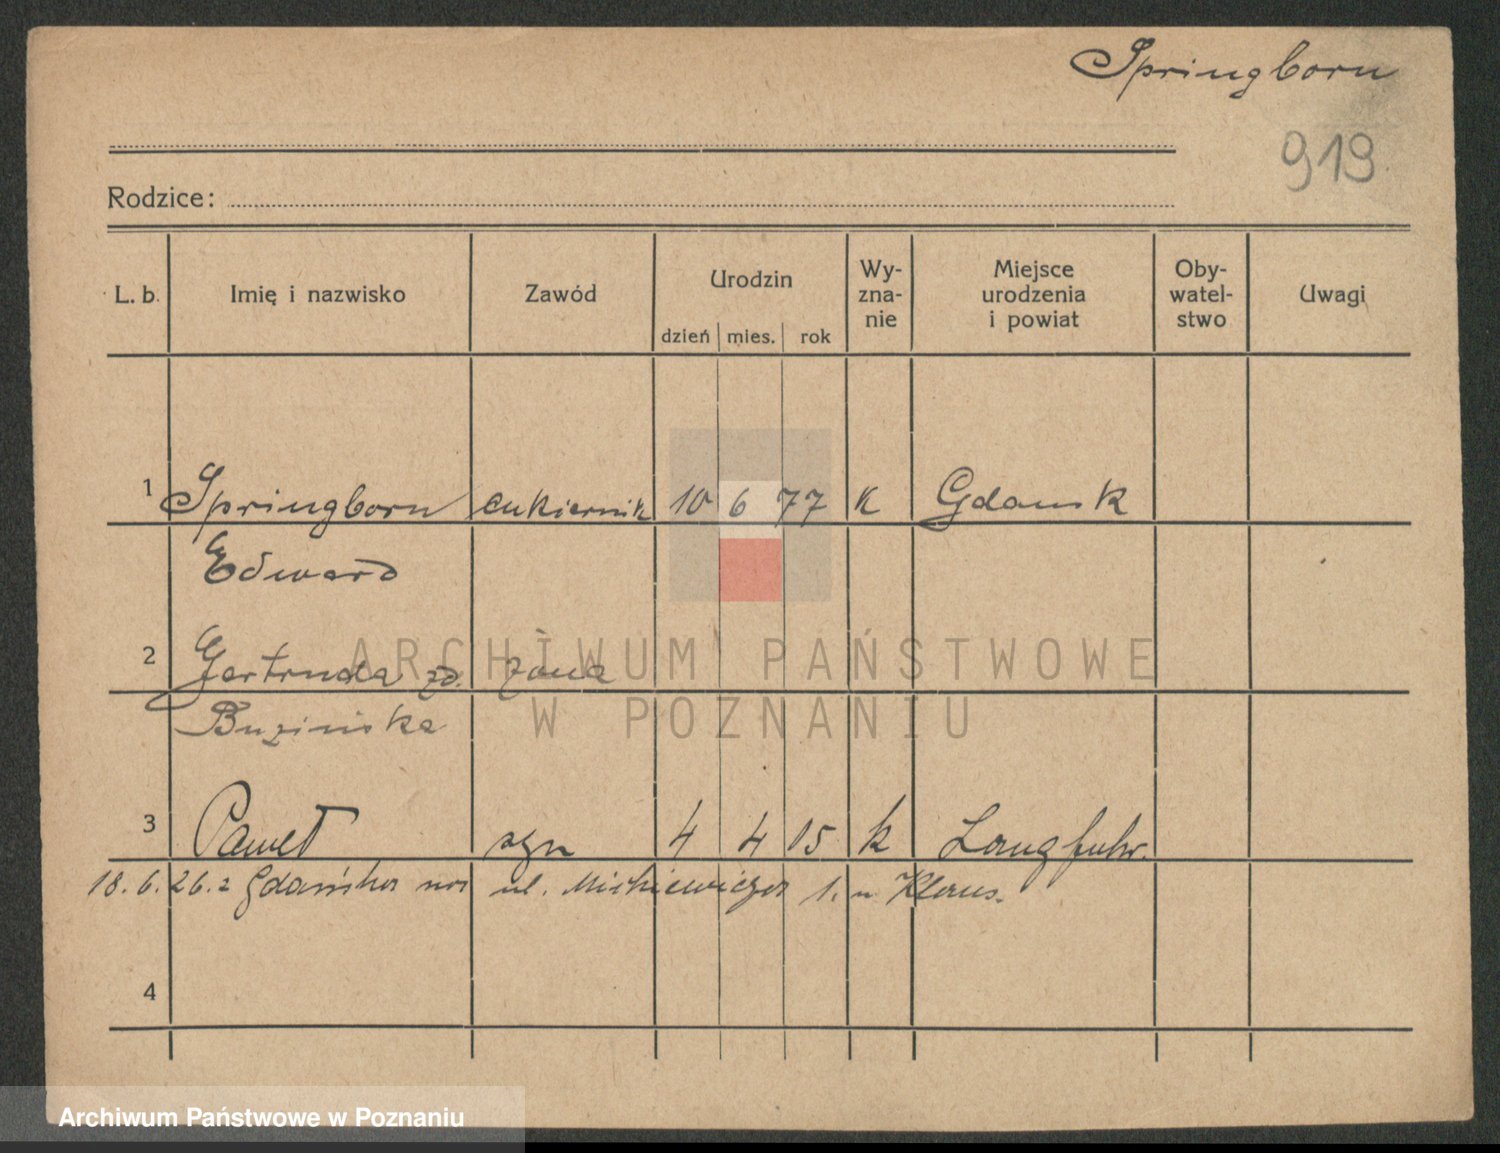 Springborn
919
Rodzice:
L. b. Imię i nazwisko Zawód Urodzin dzień mies. rok Wy-zna-nie Miejsce urodzenia i powiat Oby-watel-stwo Uwagi
1 Springborn cukiernik 10 6 77 K Gdansk
Edward
2 Gertruda zd. żona
Buzińska
3 Paweł syn 4 4 15 k Langfuhr.
18.6.26. z Gdańska na ul. Mickiewicza 1. u Klaus.
4
ARCHIWUM PAŃSTWOWE
W POZNANIU
Archiwum Państwowe w Poznaniu